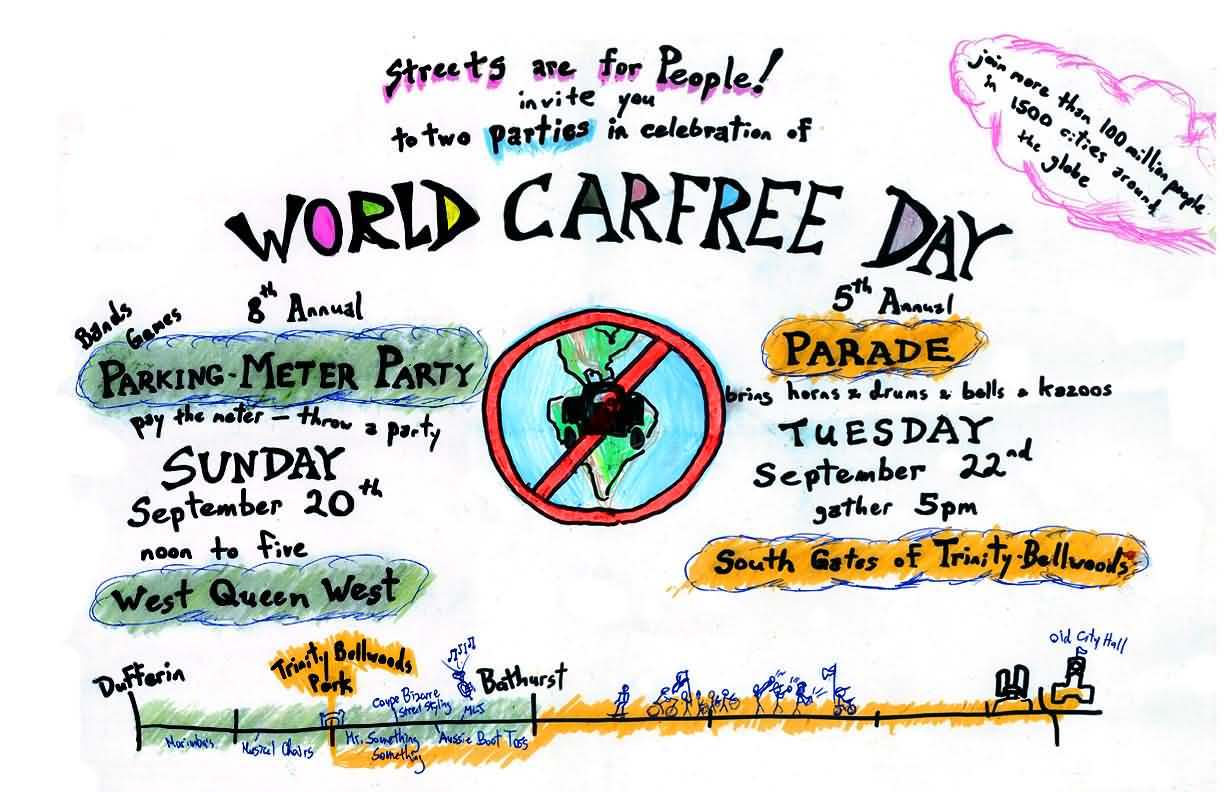 Streets are for People!
invite you
to two parties in celebration of
join more than 100 million people
in 1500 cities around
the globe
WORLD CARFREE DAY
Bands
Games
8th Annual
PARKING-METER PARTY
pay the meter – throw a party
SUNDAY
September 20th
noon to five
West Queen West
5th Annual
PARADE
bring horns & drums & bells & kazoos
TUESDAY
September 22nd
gather 5pm
South Gates of Trinity-Bellwoods
Dufferin
Trinity Bellwoods
Park
Bathurst
Old City Hall
Coupe Bizarre
Street Styling
MLJ
Marimbas
Musical Chairs
Mr. Something
Something
Aussie Boot Toss